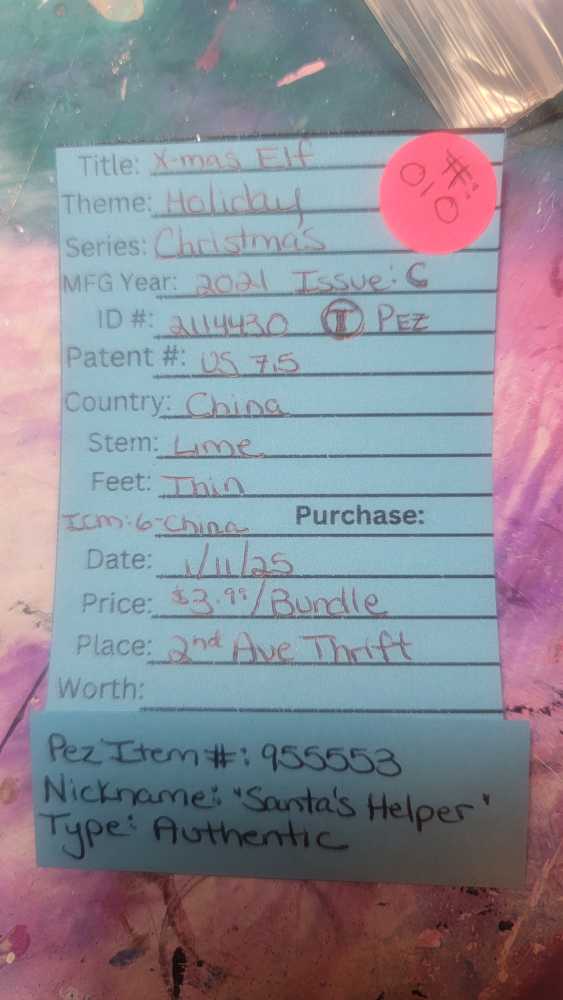 Title: X-mas Elf
#:
010
Theme: Holiday
Series: Christmas
MFG Year: 2021 Issue: C
ID #: 2114430 I PEZ
Patent #: US 7.5
Country: China
Stem: Lime
Feet: Thin
ICM: 6-China Purchase:
Date: 1/11/25
Price: $3.99/Bundle
Place: 2nd Ave Thrift
Worth:
Pez Item #: 955553
Nickname: "Santa's Helper"
Type: Authentic